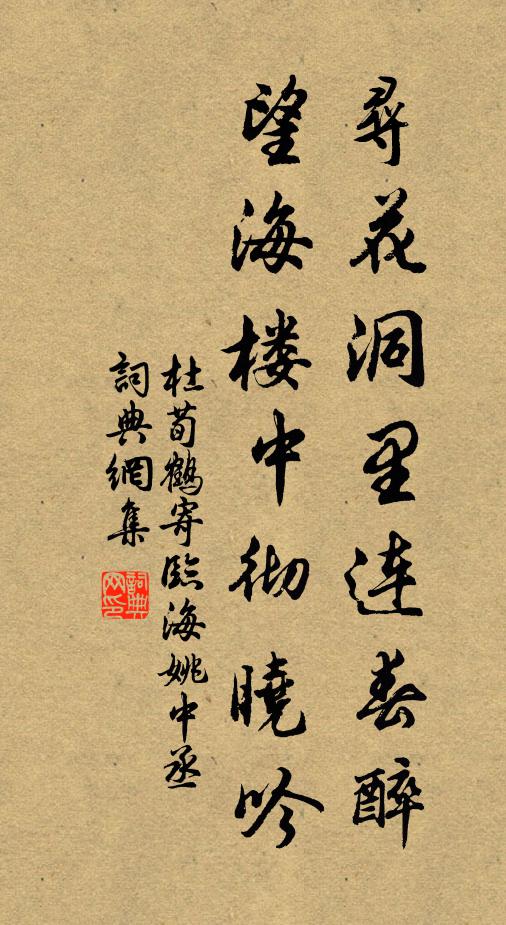 尋花洞里连春醉
望海楼中彻曉吟
杜荀鶴寄臨海姚中丞
詞典網集
詞典网印